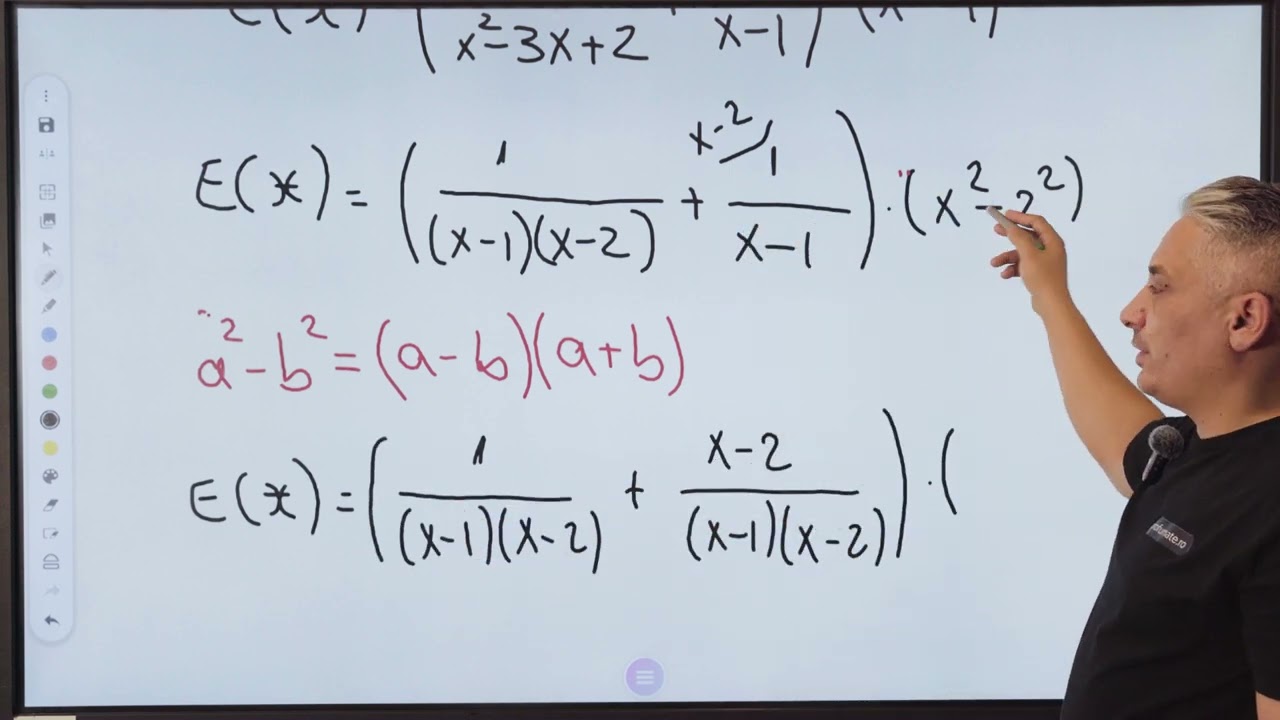 x²-3x+2 x-1
E(x) = (1/((x-1)(x-2)) + x-2/1/(x-1)) · (x²-2²)
a²-b² = (a-b)(a+b)
E(x) = (1/((x-1)(x-2)) + (x-2)/((x-1)(x-2))) · (